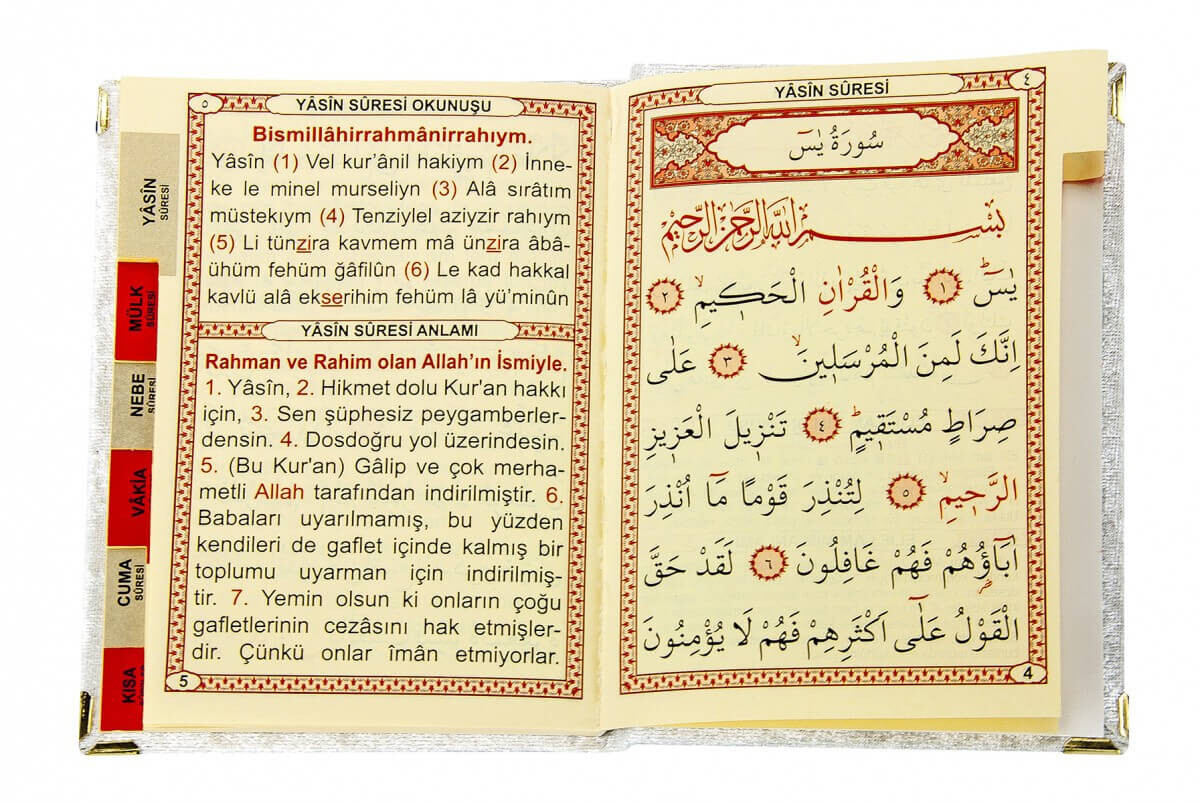 YÂSÎN SÛRESİ
٤
سُورَةُ يٰسٓ
بِسْمِ اللّٰهِ الرَّحْمٰنِ الرَّحٖيمِ
يٰسٓ ﴿١﴾ وَالْقُرْاٰنِ الْحَكٖيمِ ﴿٢﴾
اِنَّكَ لَمِنَ الْمُرْسَلٖينَ ﴿٣﴾ عَلٰى
صِرَاطٍ مُسْتَقٖيمٍ ﴿٤﴾ تَنْزٖيلَ الْعَزٖيزِ
الرَّحٖيمِ ﴿٥﴾ لِتُنْذِرَ قَوْمًا مَٓا اُنْذِرَ
اٰبَٓاؤُ۬هُمْ فَهُمْ غَافِلُونَ ﴿٦﴾ لَقَدْ حَقَّ
الْقَوْلُ عَلٰٓى اَكْثَرِهِمْ فَهُمْ لَا يُؤْمِنُونَ
4
٥
YÂSÎN SÛRESİ OKUNUŞU
Bismillâhirrahmânirrahıym.
Yâsîn (1) Vel kur’ânil hakiym (2) İnne-
ke le minel murseliyn (3) Alâ sırâtım
müstekıym (4) Tenziylel aziyzir rahıym
(5) Li tünzira kavmem mâ ünzira âbâ-
ühüm fehüm ğafilûn (6) Le kad hakkal
kavlü alâ ekserihim fehüm lâ yü’minûn
YÂSÎN SÛRESİ ANLAMI
Rahman ve Rahim olan Allah’ın İsmiyle.
1. Yâsîn, 2. Hikmet dolu Kur'an hakkı
için, 3. Sen şüphesiz peygamberler-
densin. 4. Dosdoğru yol üzerindesin.
5. (Bu Kur'an) Gâlip ve çok merha-
metli Allah tarafından indirilmiştir. 6.
Babaları uyarılmamış, bu yüzden
kendileri de gaflet içinde kalmış bir
toplumu uyarman için indirilmiş-
tir. 7. Yemin olsun ki onların çoğu
gafletlerinin cezâsını hak etmişler-
dir. Çünkü onlar îmân etmiyorlar.
5
YÂSÎN
SÛRESİ
MÜLK
SÛRESİ
NEBE
SÛRESİ
VÂKIA
CUMA
SÛRESİ
KISA